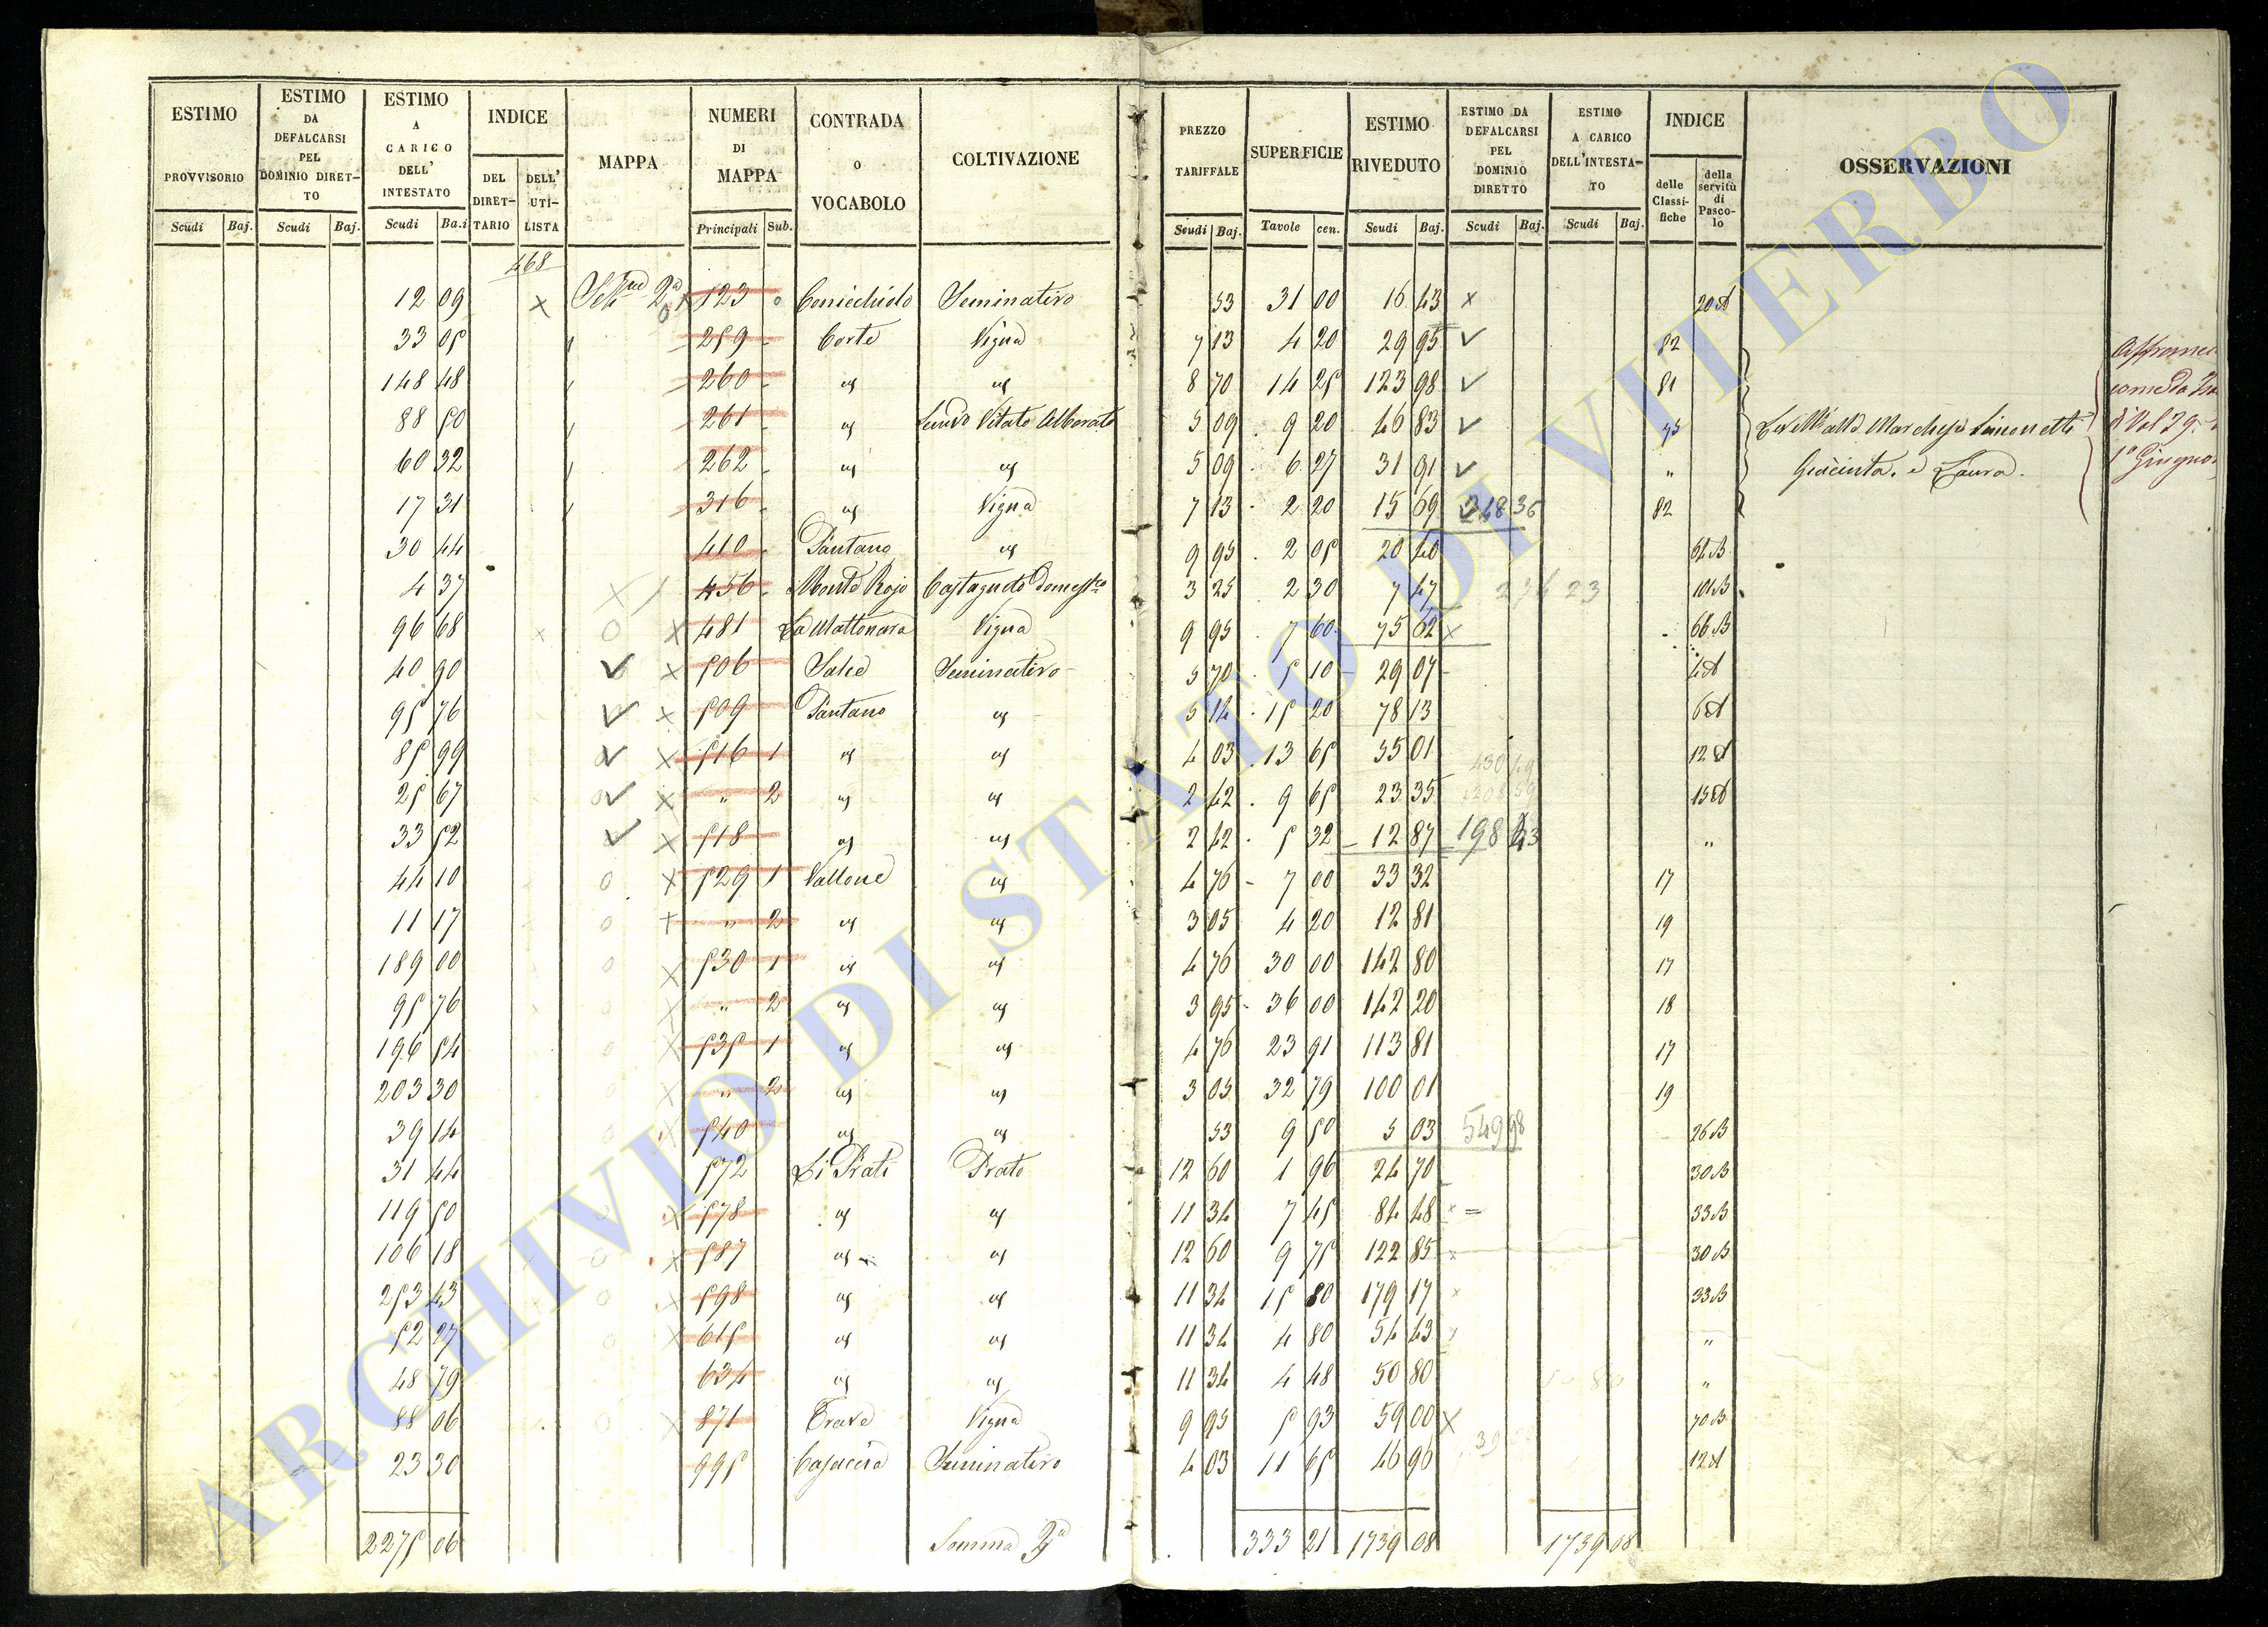 ESTIMO PROVVISORIO Scudi Baj.
ESTIMO DA DEFALCARSI PEL DOMINIO DIRETTO Scudi Baj.
ESTIMO A CARICO DELL' INTESTATO Scudi Ba.i
INDICE DEL DIRETTARIO DELL' UTILISTA
MAPPA
NUMERI DI MAPPA Principali Sub.
CONTRADA O VOCABOLO
COLTIVAZIONE
PREZZO TARIFFALE Scudi Baj.
SUPERFICIE Tavole cen.
ESTIMO RIVEDUTO Scudi Baj.
ESTIMO DA DEFALCARSI PEL DOMINIO DIRETTO Scudi Baj.
ESTIMO A CARICO DELL'INTESTATO Scudi Baj.
INDICE delle Classifiche della servitù di Pascolo
OSSERVAZIONI
468
12 09 x 2a 123 Conicchiolo Seminativo 53 31 00 16 43 x 20 A
33 05 259 Corte Vigna 7 13 4 20 29 95 82
148 48 260 " " 8 70 14 25 123 98 81
88 50 261 " Vitato Alberato 5 09 9 20 46 83 75 Marchesi Simonetti
60 32 262 " " 5 09 6 27 31 91 " Giacinta, e Laura.
17 31 316 " Vigna 7 13 2 20 15 69 248 36 82
30 44 410 Pantano " 9 95 2 05 20 40 64 B
4 37 456 Monte Rojo Castagneto Domestco 3 25 2 30 7 47 236 23 101 B
96 68 x 481 La Mattonara Vigna 9 95 7 60 75 62 x 66 B
40 90 x 506 Salce Seminativo 5 70 5 10 29 07 4 A
95 76 x 509 Pantano " 5 14 15 20 78 13 6 A
85 99 x 516 1 " " 4 03 13 65 55 01 12 A
25 67 x " 2 " " 2 42 9 65 23 35 15 A
33 52 x 518 " " 2 42 5 32 12 87 198 43 "
44 10 0 x 529 1 Vallone " 4 76 7 00 33 32 17
11 17 0 + " 2 " " 3 05 4 20 12 81 19
189 00 0 x 530 1 " " 4 76 30 00 142 80 17
95 76 0 x " 2 " " 3 95 36 00 142 20 18
196 54 0 x 535 1 " " 4 76 23 91 113 81 17
203 30 0 x " 2 " " 3 05 32 79 100 01 19
39 14 0 x 540 " " 53 9 50 5 03 549 98 26 B
31 44 572 Li Prati Prato 12 60 1 96 24 70 30 B
119 50 0 x 578 " " 11 34 7 45 84 48 33 B
106 18 0 x 587 " " 12 60 9 75 122 85 30 B
253 43 0 x 598 " " 11 34 15 80 179 17 33 B
52 27 0 x 615 " " 11 34 4 80 54 43 "
48 79 634 " " 11 34 4 48 50 80 "
88 06 0 x 871 Trave Vigna 9 95 5 93 59 00 x 70 B
23 30 995 Seminativo 4 03 11 65 46 96 12 A
2275 06 Somma 2a 333 21 1739 08 1739 08
1o Giugno
ARCHIVIO DI STATO DI VITERBO